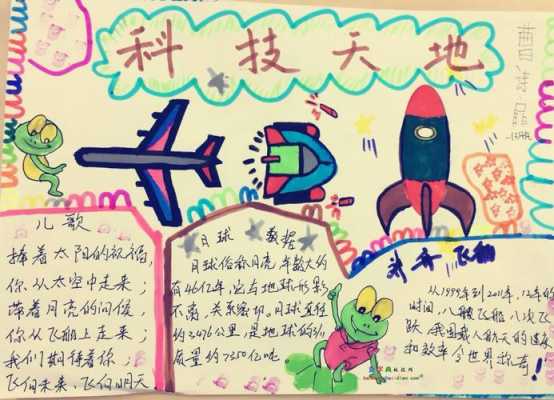 科技天地
儿歌
捧着太阳的祝福,
你从太空中走来;
带着月亮的问候,
你从飞船上走来;
我们期待着你;
飞向未来,飞向明天
月球 数据
月球俗称月亮,年龄大约
有46亿年,它与地球形影
不离,关系密切,月球直径
约3476公里,是地球的3/11
质量约7350亿吨
神舟飞船
从1999年到2011年,12年的
时间,八艘飞船,八次飞
跃,我国载人航天的速度
和效率令世界惊奇!